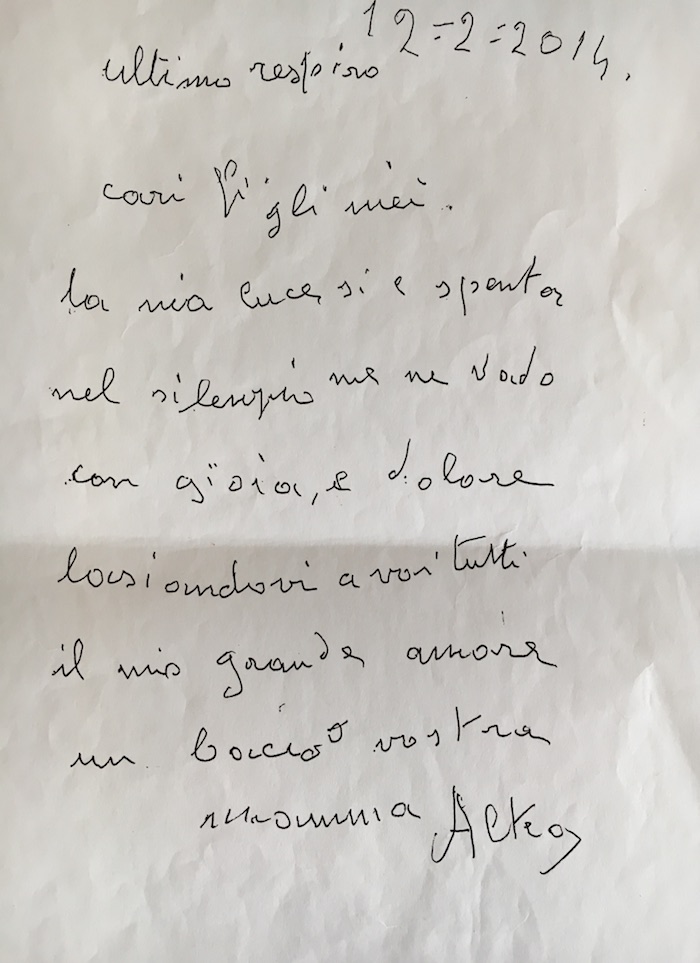 12=2=2014.
ultimo respiro
cari figli miei.
la mia luce si e spenta
nel silenzio me ne vado
con gioia, e dolore
lasiandovi a voi tutti
il mio grande amore
un bacio vostra
mamma Altea